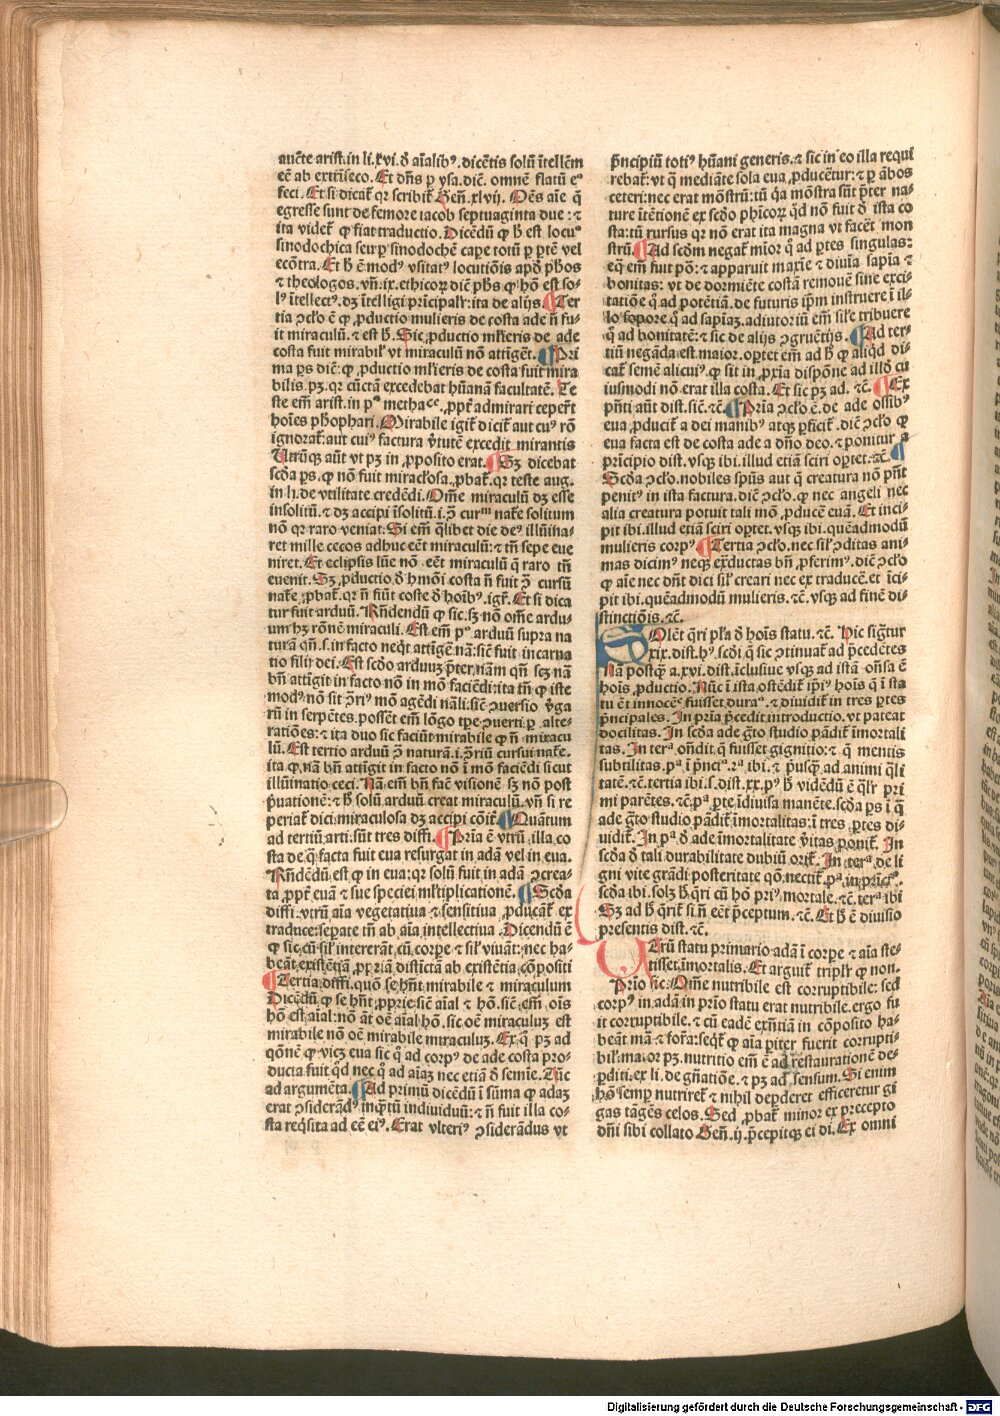 aucte arist. in li. xvi. ď aīalibꝰ. dicētis solū ītellēm
eē ab extrīseco. Et dn̄s ꝑ ysa. diē. omnē flatū eᵒ
feci. Et si dicat᷑ qr scribit᷑ Gen̄. xlvij. Oēs aīe q̄
egresse sunt de femore iacob septuaginta due : ⁊
ita videt᷑ ꝙ fiat traductio. Dicēdū ꝙ h̄ est locuˢ
sinodochica seu ꝑ sinodochē cape totū ꝑ ꝑtē vel
ecōtra. Et h̄ ē modꝰ vsitatꝰ locutiōis apd̄ ph̄os
⁊ theologos. vn̄. ix. ethicoꝝ diē ph̄s ꝙ hō est so-
lꝰ ītellectꝰ. dꝫ ītelligi pr̄icipalr̄: ita de alijs. ¶ Ter
tia ꝯclo ē ꝙ ꝓductio mulieris de costa ade n̄ fu-
it miraculū. ⁊ est h̄. Sic ꝓductio ml̄ieris de ade
costa fuit mirabil᷑ vt miraculū nō attīget. ¶ Pri
ma ꝑs diē: ꝙ ꝓductio ml̄ieris de costa fuit mira
bilis. pꝫ. qr cūcta excedebat hūanā facultatē. Te
ste em̄ arist. in pᵒ metha ꝓpt᷑ admirari ceper̄t
hoīes ph̄ophari. Mirabile igit᷑ dicit᷑ aut cuꝰ rō
ignorat᷑: aut cuiꝰ factura v̄tutē excedit mirantis
Utrūqꝫ aūt vt pꝫ in ꝓposito erat. ¶ Sꝫ dicebat
scd̄a ꝑs. ꝙ nō fuit miracl̄osa. ꝓbat᷑. qr teste aug.
in li. de vtilitate credēdi. Om̄e miraculū dꝫ esse
insolitū. ⁊ dꝫ accipi īsolitū. i. ꝯ̄ curᵐ nat᷑e solitum
nō qr raro veniat: Si em̄ q̄libet die deꝰ illūina-
ret mille cecos adhuc eēt miraculū: ⁊ tn̄ sepe eue
niret. Et eclipsis lūe nō eēt miraculū q̄ raro tn̄
euenit. Sꝫ ꝓductio ď hmōi costa n̄ fuit ꝯ̄ cursū
nat᷑e. ꝓbat᷑. qr n̄ fiūt coste ď hoībꝰ. igr̄. Et si dica
tur fuit arduū. Rn̄dendū ꝙ sic. sꝫ nō om̄e ardu-
um hꝫ rōnē miraculi. Est em̄ pᵒ arduū supra na
turā qn̄. s. in facto neqt᷑ attīgē nā: sic̄ fuit incarna
tio filij dei. Est scd̄o arduuꝫ p̄ter nām qn̄ scꝫ nā
bn̄ attīgit in facto nō in mō faciēdi: ita tn̄ ꝙ iste
modꝰ nō sit ꝯ̄riꝰ mō agēdi nāli: sic̄ ꝯuersio v̄ga
rū in serpētes. possēt em̄ lōgo tpe ꝯuerti ꝑ alte-
ratiōes: ⁊ ita duo sic faciūt mirabile ꝙ n̄ miracu
lū. Est tertio arduū ꝯ̄ naturā. i. ꝯ̄riū cursui nat᷑e.
ita ꝙ nā bn̄ attīgit in facto nō ī mō faciēdi sicut
illūinatio ceci. Nā em̄ bn̄ fac̄ visionē sꝫ nō post
p̄uationē: ⁊ h̄ solū arduū creat miraculū. vn̄ si re
periat᷑ dici miraculosa dꝫ accipi cōit᷑. ¶ Quātum
ad tertiū arti. sūt tres diffi. ¶ Pria ē vtrū illa co
sta de q̄ facta fuit eua resurgat in adā vel in eua.
Rn̄dēdū est ꝙ in eua: qr solū fuit in adā ꝯcrea-
ta ꝓpt᷑ euā ⁊ sue speciei ml̄tiplicationē. ¶ Scd̄a
diffi. vtrū aīa vegetatiua ⁊ sensitiua ꝓducat᷑ ex
traduce: seꝑate tn̄ ab aīa intellectiua. Dicendū ē
ꝙ sic. cū sil᷑ intererāt. cū corpe ⁊ sil᷑ viuāt: nec ha-
beāt existētiā ꝓpriam distīctā ab existētia cōpositi
¶ Tertia diffi. quō se hn̄t mirabile ⁊ miraculum
Dicēdū ꝙ se hn̄t ꝓprie: sic̄ aīal ⁊ hō. sic̄ em̄ oīs
hō est aīal: nō āt oē aīal hō. sic oē miraculuꝫ est
mirabile nō oē mirabile miraculuꝫ. Ex q̄ pꝫ ad
qōnē ꝙ vicꝫ eua sic qͦ ad corpꝰ de ade costa pro-
ducta fuit qd̄ nec qͦ ad aīaꝫ nec etiā ď semīe. Tūc
ad argumēta. ¶ Ad primū dicēdū ī sūma ꝙ adaꝫ
erat ꝯsiderādꝰ inqͣtū indiuiduū: ⁊ n̄ fuit illa co-
sta reqͥsita ad eē eiꝰ. Erat vlteriꝰ ꝯsiderādus vt
p̄ncipiū totiꝰ hūani generis. ⁊ sic in eo illa requi
rebat᷑: vt q̄ mediāte sola eua ꝓducētur: ⁊ ꝑ ābos
ceteri: nec erat mōstrū: tū qͣa mōstra sūt p̄ter na-
ture ītētionē ex scd̄o ph̄icoꝝ qd̄ nō fuit ď ista co
sta: tū rursus qr nō erat ita magna vt facēt mon
strū. ¶ Ad scdm negat᷑ mīor qͦ ad ꝑtes singulas:
eqͣ em̄ fuit pō: ⁊ apparuit maxīe ⁊ diuīa sapīa ⁊
bonitas: vt de dormiēte costā remouē sine exci-
tatiōe qͦ ad potētiā. de futuris ip̄m instruere ī il-
lo sopore. qͦ ad sapīaꝫ. adiutoriū em̄ sil᷑e tribuere
qͦ ad bonitatē: ⁊ sic de alijs ꝯgruētijs. ¶ Ad ter-
tiū negāda est maior. oꝑtet em̄ ad h̄ ꝙ aliqd̄ di-
cat᷑ semē alicuiꝰ. ꝙ sit in ꝓxīa dispōne ad illō cu
iusmodi nō erat illa costa. Et sic pꝫ ad. ⁊c̄. ¶ Ex
pn̄ti aūt dist. sic̄. ⁊c̄. ¶ Pria ꝯclo ē. de ade ossibꝰ
eua ꝓducit᷑ a dei manibꝰ atqꝫ ꝑficit᷑. diē ꝯclo ꝙ
eua facta est de costa ade a dn̄o deo. ⁊ ponitur a
pr̄icipio dist. vsqꝫ ibi. illud etiā sciri oꝑtet. ⁊c̄. ¶
Scd̄a ꝯclo. nobiles spūs aut q̄ creatura nō pn̄t
penitꝰ in ista factura. diē ꝯclo. ꝙ nec angeli nec
alia creatura potuit tali mō ꝓducē euā. Et inci-
pit ibi. illud etiā sciri oꝑtet. vsqꝫ ibi. quēadmodū
mulieris corpꝰ ¶ Tertia ꝯclo. nec sil᷑ ꝯditas ani-
mas dicimꝰ neqꝫ ex̄ductas bn̄ ꝓferimꝰ. diē ꝯclo
ꝙ aīe nec dn̄t dici sil᷑ creari nec ex traducē. et īci-
pit ibi. quēadmodū mulieris. ⁊c̄. vsqꝫ ad finē di-
stinctiōis. ⁊c̄.
SOlēt q̄ri pl̄a ď hoīs statu. ⁊c̄. Hic sig̃tur
xix. dist. hꝰ scd̄i. q̄ sic ꝯtinuat᷑ ad p̄cedētes
Nā postqͣ a. xvi. dist. īclusiue vsqꝫ ad istā on̄sa ē
hoīs ꝓductio. Nūc ī ista ostēdit᷑ ip̄iꝰ hoīs q̄ ī sta
tu ēt innocē fuisset duraᵒ. ⁊ diuidit᷑ in tres ꝑtes
p̄ncipales. In pria p̄cedit introductio. vt pateat
docilitas. In scd̄a ade g̃to studio pādit᷑ īmortali
tas. In terᵃ on̄dit. q̄ fuisset gignitio: ⁊ q̄ mentis
subtilitas. pᵃ ī p̄nciᵒ. ꝛᵃ ibi. ⁊ p̄usqͣ ad animi q̄li
tatē. ⁊c̄. tertia ibi. s. dist. xx. pꝰ h̄ vidēdū ē qͣlr pri
mi parētes. ⁊c̄. pᵃ ꝑte īdiuisa manēte. scd̄a ꝑs ī q̄
ade g̃to studio pādit᷑ īmortalitas: ī tres ꝑtes di-
uidit᷑. In pᵃ ď ade īmortalitate v̄itas ponit᷑. In
scd̄a ď tali durabilitate dubiū orit᷑. In terᵃ. de li
gni vite grādi posteritate qō. nectit᷑. pᵃ. in pr̄icᵒ.
scd̄a ibi. solꝫ h̄ q̄ri cū hō priꝰ. mortale. ⁊c̄. terᵃ ibi
Sꝫ ad h̄ q̄rit᷑ si n̄ eēt p̄ceptum. ⁊c̄. Et h̄ ē diuisio
presentis dist. ⁊c̄.
UTrū statu primario adā ī corpe ⁊ aīa ste-
tisset īmortalis. Et arguit᷑ triplr̄ ꝙ non.
Prio sic. Om̄e nutribile est corruptibile: sed
corpꝰ in adā in prio statu erat nutribile. ergo fu
it corruptibile. ⁊ cū eadē exn̄tiā in cōposito ha-
beāt mā ⁊ for̄a: seqt᷑ ꝙ aīa pariter fuerit corrupti-
bil᷑. maior pꝫ. nutritio em̄ ē ad restaurationē de-
ꝑditi. ex li. de gn̄atiōe. ⁊ pꝫ ad sensum. Si enim
hō semꝑ nutriret᷑ ⁊ nihil deꝑderet efficeretur gi
gas tāgēs celos. Sed ꝓbat᷑ minor ex precepto
dn̄i sibi collato Gen̄. ij. p̄cepitqꝫ ei di. Ex omni
Digitalisierung gefördert durch die Deutsche Forschungsgemeinschaft - DFG